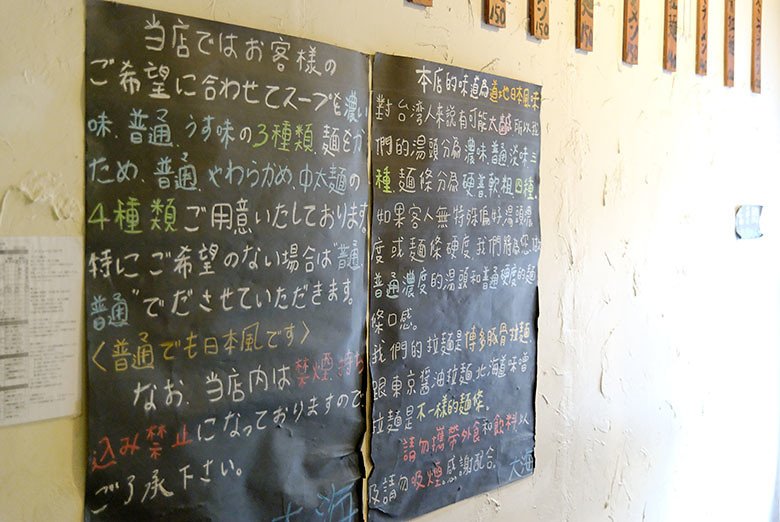 当店ではお客様の
ご希望に合わせてスープを濃い
味、普通、うす味の3種類、麺をか
ため、普通、やわらかめ、中太麺の
4種類ご用意いたしております。
特にご希望のない場合は"普通
普通"でださせていただきます。
〈普通でも日本風です〉
なお、当店内は禁煙、持ち
込み禁止になっておりますので、
ご了承下さい。
大海
本店的味道為道地日本風味
對台湾人来說有可能太鹹所以我
們的湯頭分為濃味.普通.淡味三
種、麵條分為硬.普.軟.粗四種.
如果客人無特殊偏好湯頭濃
度或麵條硬度,我們將為您做
普通濃度的湯頭和普通硬度的麵
條口感。
我們的拉麵是博多豚骨拉麵
跟東京醬油拉麵.北海道味噌
拉麵是不一樣的麵條。
請勿攜帶外食和飲料以
及請勿吸煙,感謝配合。大海
150
150
150